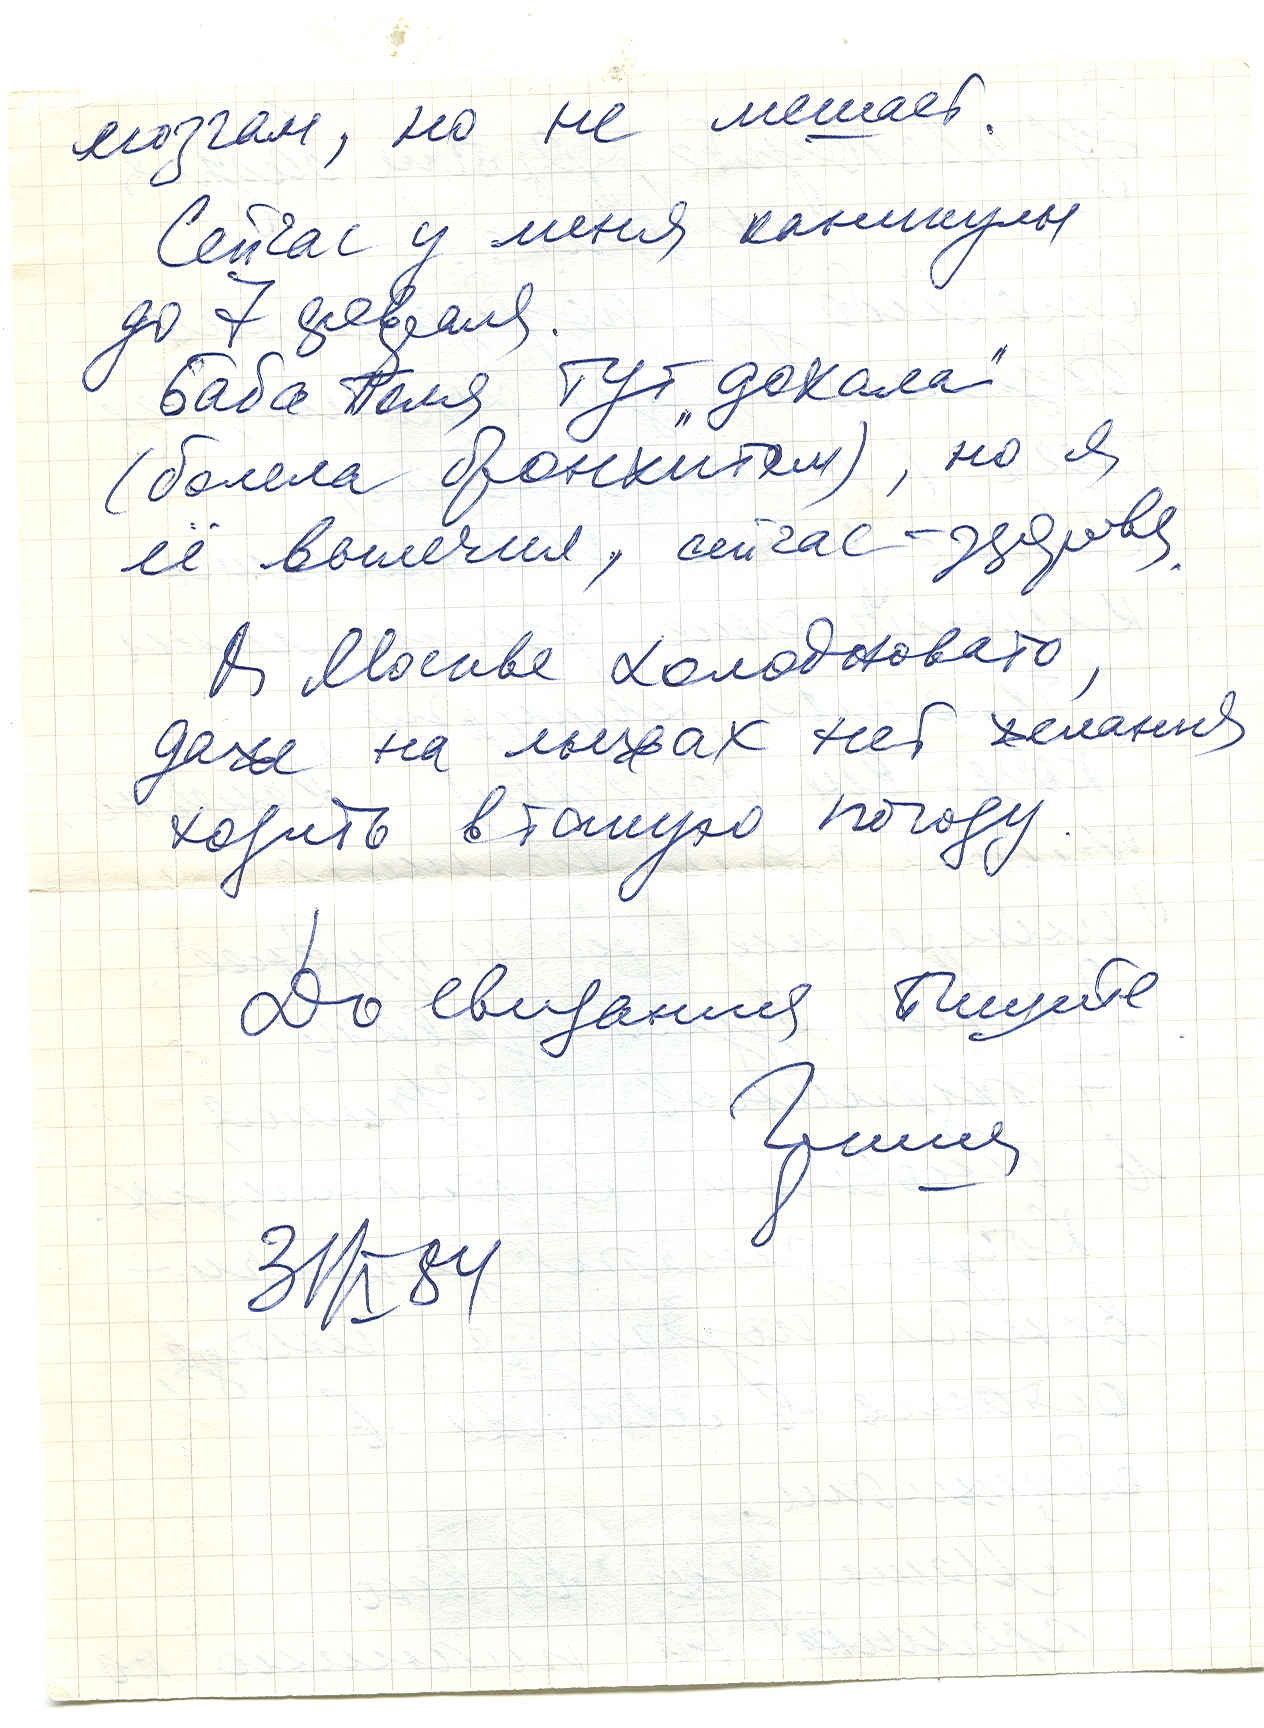 мозгам, но не мешает.
Сейчас у меня каникулы
до 7 февраля.
Баба Поля тут „дохала"
(болела бронхитом), но я
её вылечил, сейчас – здорова.
В Москве холодновато,
даже на лыжах нет желания
ходить в такую погоду.
До свидания Пишите
Гриша
31/I 84